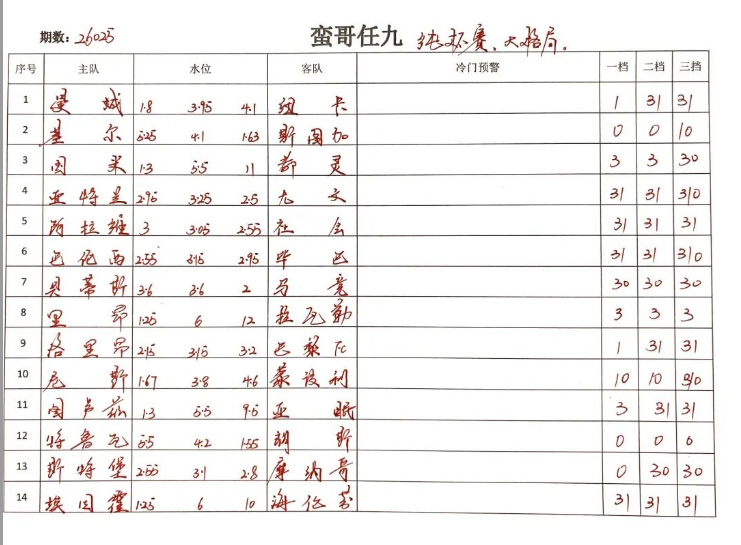 期数: 26025 蛮哥任九 纯杯赛、大格局.
序号 主队 水位 客队 冷门预警 一档 二档 三档
1 曼城 1.8 3.95 4.1 纽卡 1 31 31
2 基尔 5.25 4.1 1.63 斯图加 0 0 10
3 国米 1.3 5.5 11 都灵 3 3 30
4 亚特兰 2.95 3.25 2.5 尤文 31 31 310
5 阿拉维 3 3.05 2.55 社会 31 31 31
6 巴伦西 2.55 3.15 2.95 毕巴 31 31 310
7 贝蒂斯 3.6 3.6 2 马竞 30 30 30
8 里昂 1.25 6 12 拉瓦勒 3 3 3
9 洛里昂 2.15 3.15 3.2 巴黎FC 1 31 31
10 尼斯 1.67 3.8 4.6 蒙彼利 10 10 310
11 图卢兹 1.3 5.5 9.5 亚眠 3 31 31
12 特鲁瓦 5.5 4.2 1.55 朗斯 0 0 0
13 斯特堡 2.55 3.1 2.8 摩纳哥 0 30 30
14 埃因霍 1.25 6 10 海伦芬 31 31 31